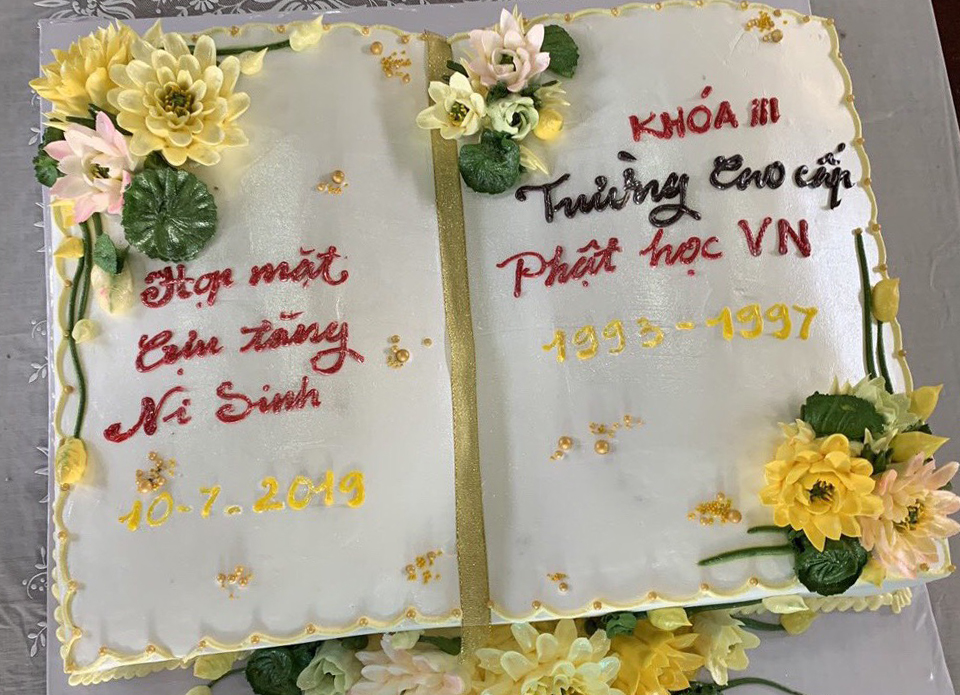 Họp mặt
Cựu tăng
Ni Sinh
10-7-2019
KHÓA III
Trường Cao cấp
Phật học VN
1993-1997